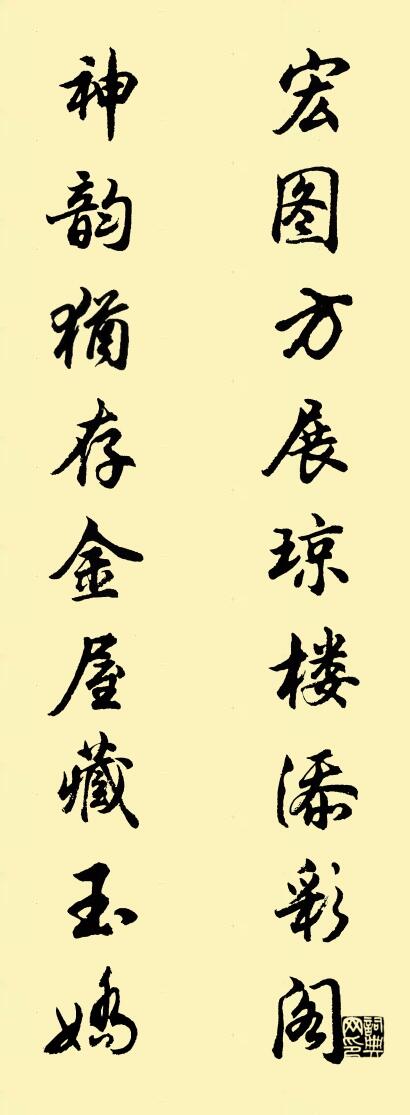 宏图方展琼楼添彩阁
神韵犹存金屋藏玉娇
詞典网印